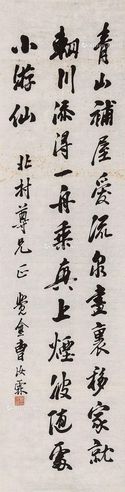 青山補屋愛流泉畫裏移家就
輞川添得一舟乘真上煙波隨處
小游仙 北村尊兄正 曹汝霖